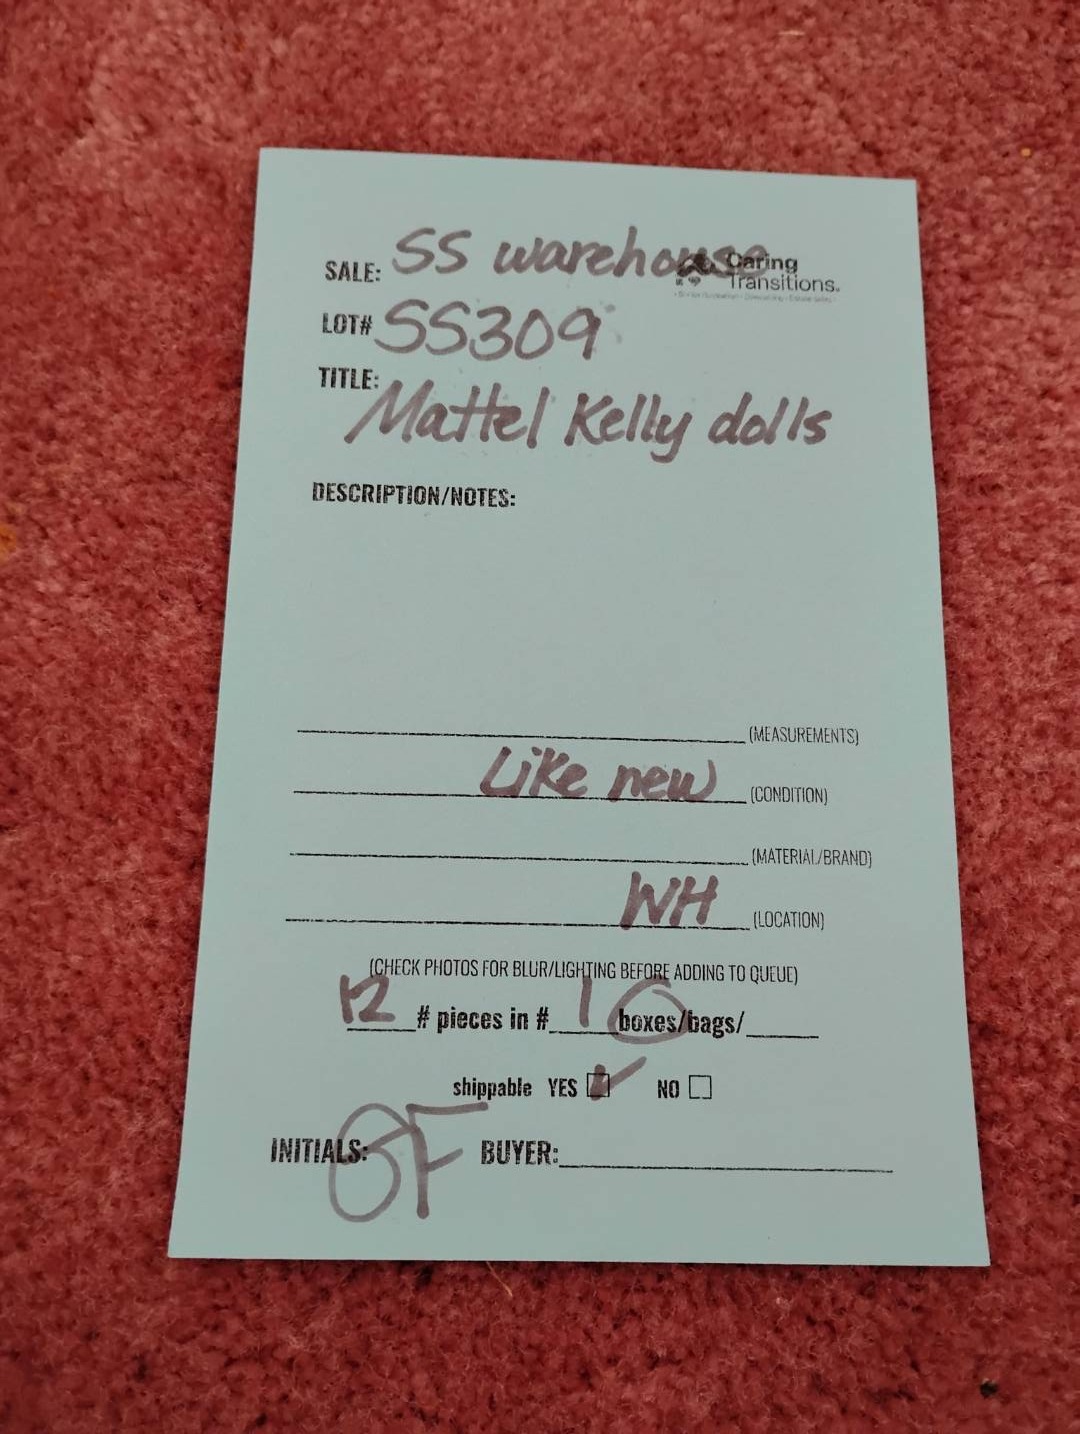 SALE: SS warehouse
Caring
Transitions.
LOT# SS309
TITLE: Mattel Kelly dolls
DESCRIPTION/NOTES:
(MEASUREMENTS)
Like new (CONDITION)
(MATERIAL/BRAND)
WH (LOCATION)
(CHECK PHOTOS FOR BLUR/LIGHTING BEFORE ADDING TO QUEUE)
12 # pieces in # 1 boxes/bags/
shippable YES NO
INITIALS: BUYER: